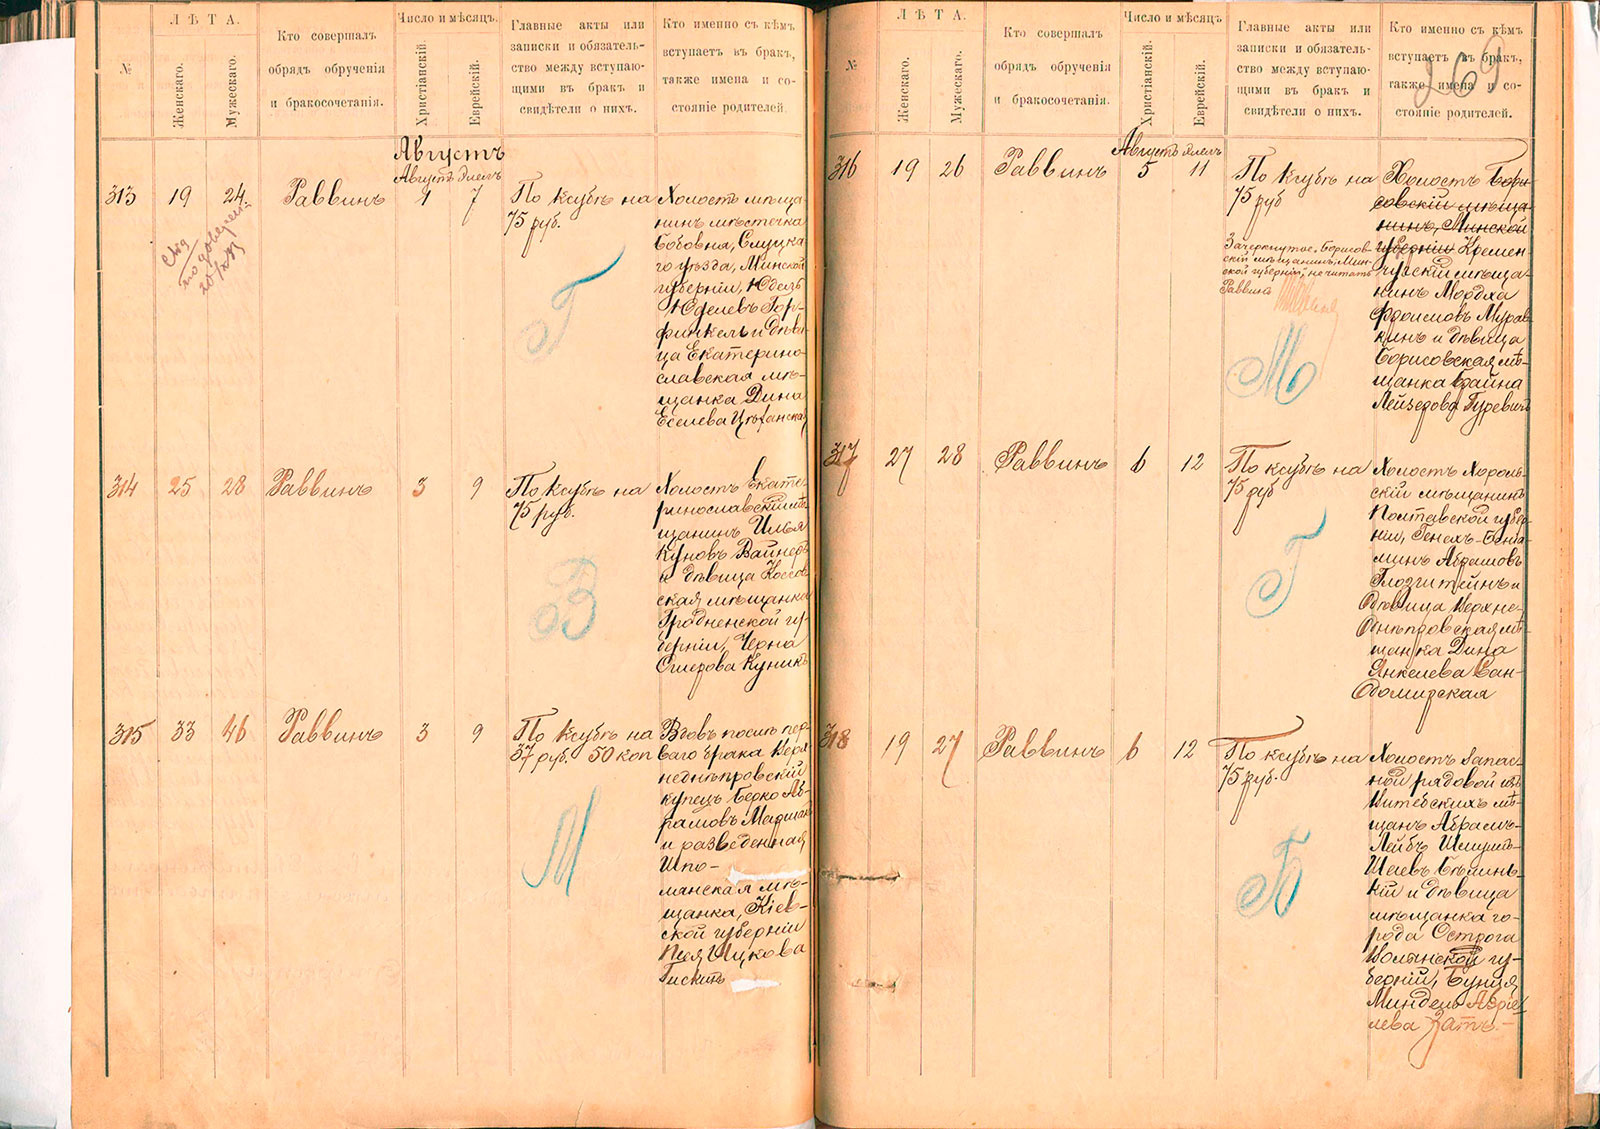 №
ЛѢТА.
Женскаго.
Мужескаго.
Кто совершалъ
обрядъ обрученія
и бракосочетанія.
Число и мѣсяцъ.
Христіанскій.
Еврейскій.
Главные акты или
записки и обязатель-
ство между вступаю-
щими въ бракъ и
свидѣтели о нихъ.
Кто именно съ кѣмъ
вступаетъ въ бракъ,
также имена и со-
стояніе родителей.
Августъ
Августъ Элелъ
313
19
24.
Раввинъ
1
7
По ксубѣ на
75 руб.
Холостъ мѣща-
нинъ мѣстечка
Бобовня, Слуцка-
го уѣзда, Минской
губерніи, Юдель
Юделевъ Гор-
финкель и дѣви-
ца Екатерино-
славская мѣ-
щанка Дина
Еселева
Г
314
25
28
Раввинъ
3
9
По ксубѣ на
75 руб.
Холостъ Екате-
ринославскій мѣ-
щанинъ Илья
Куновъ Вайнеръ
и дѣвица Коссов-
ская мѣщанка
Гродненской гу-
берніи, Черна
Ошерова Куникъ
В
315
33
46
Раввинъ
3
9
По ксубѣ на
37 руб. 50 коп
Вдовъ послѣ пер-
ваго брака Верх-
неднѣпровскій
купецъ Берко Аб-
рамовъ Маршакъ
и разведенная
Шпо-
лянская мѣ-
щанка, Кіев-
ской губерніи
Песя Ицкова
М
№
ЛѢТА.
Женскаго.
Мужескаго.
Кто совершалъ
обрядъ обрученія
и бракосочетанія.
Число и мѣсяцъ.
Христіанскій.
Еврейскій.
Главные акты или
записки и обязатель-
ство между вступаю-
щими въ бракъ и
свидѣтели о нихъ.
Кто именно съ кѣмъ
вступаетъ въ бракъ,
также имена и со-
стояніе родителей.
269
Августъ Элелъ
316
19
26
Раввинъ
5
11
По ксубѣ на
75 руб
Зачеркнутое „Борисов-
скій мѣщанинъ, Мин-
ской губерніи" не читать
Раввинъ
Холостъ Бори-
совскій мѣща-
нинъ, Минской
губерніи Кремен-
чугскій мѣща-
нинъ Мордха
Фроимовъ Мурав-
кинъ и дѣвица
Борисовская мѣ-
щанка Брайна
Лейзерова Гуревичъ
М
317
27
28
Раввинъ
6
12
По ксубѣ на
75 руб
Холостъ Хороль-
скій мѣщанинъ
Полтавской губер-
ніи, Генехъ-Бенья-
минъ Абрашовъ
Глозштейнъ и
дѣвица Верхне-
днѣпровская мѣ-
щанка Дина
Янкелева Сан-
домирская
Г
318
19
27
Раввинъ
6
12
По ксубѣ на
75 руб.
Холостъ запас-
ной рядовой изъ
Витебскихъ мѣ-
щанъ Абрамъ-
Лейбъ Шмуилъ-
Шеевъ Бѣлинь-
кій и дѣвица
мѣщанка го-
рода Острога
Волынской гу-
берніи, Бунця
Миндель Авріе-
лева Затъ.
Б